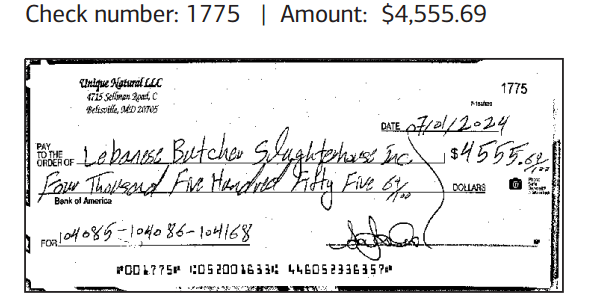 Check number: 1775 | Amount: $4,555.69
Unique Natural LLC
4715 Sellman Road, C
Beltsville, MD 20705
1775
DATE 07/01/2024
PAY TO THE ORDER OF Lebanese Butcher Slaughterhouse Inc. $4555.69/100
Four Thousand Five Hundred Fifty Five 69/100 DOLLARS
Bank of America
FOR 104085-104086-104168
⑈001775⑈ ⑆052001633⑆ 446052336357⑈